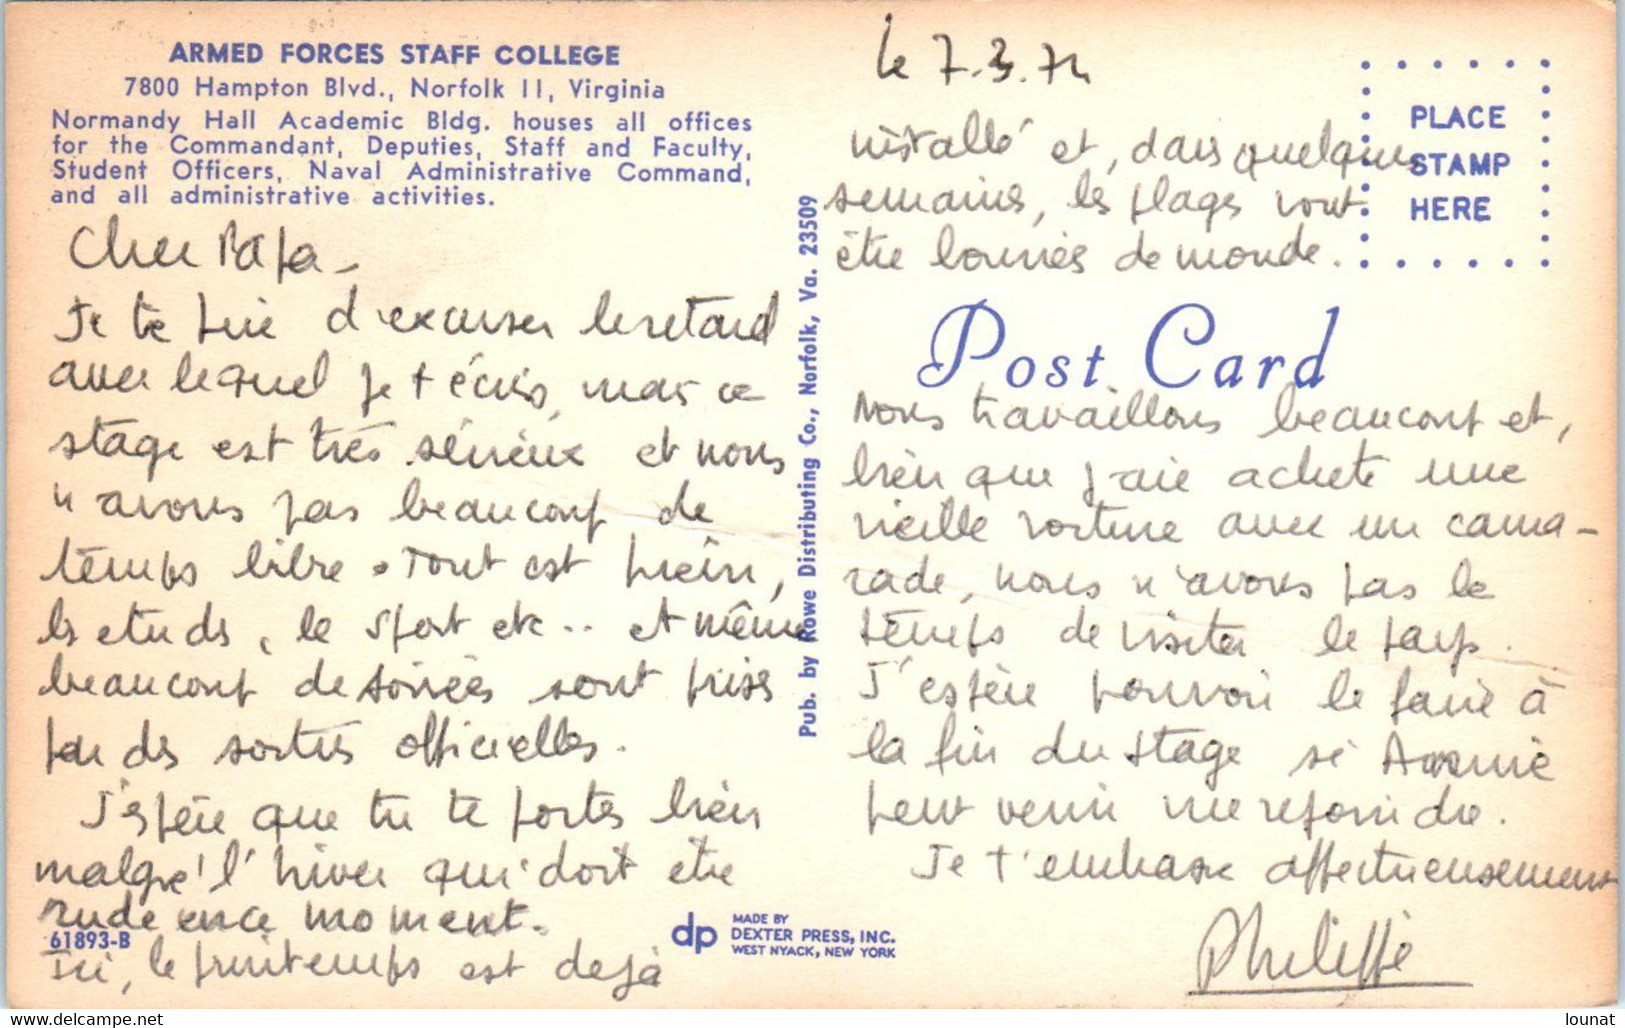 ARMED FORCES STAFF COLLEGE
7800 Hampton Blvd., Norfolk 11, Virginia
Normandy Hall Academic Bldg. houses all offices
for the Commandant, Deputies, Staff and Faculty,
Student Officers, Naval Administrative Command,
and all administrative activities.
Cher Papa -
Je te prie d'excuser le retard
avec lequel je t'écris, mais ce
stage est très sérieux et nous
n'avons pas beaucoup de
temps libre. Tout est prévu,
les etudes, le sport etc.. et même
beaucoup de soirées sont prises
par des sorties officielles.
J'espère que tu te portes bien
malgré l'hiver qui doit être
rude en ce moment.
61893-B
Ici, le printemps est dejà
Pub. by Rowe Distributing Co., Norfolk, Va. 23509
dp MADE BY
DEXTER PRESS, INC.
WEST NYACK, NEW YORK
le 7.3.74
PLACE
STAMP
HERE
installé et, dans quelques
semaines, les plages vont
être bourrées de monde.
Post Card
Nous travaillons beaucoup et,
bien que j'aie acheté une
vieille voiture avec un cama-
rade, nous n'avons pas le
temps de visiter le pays.
J'espère pouvoir le faire à
la fin du stage si Annie
peut venir me rejoindre.
Je t'embrasse affectueusement
Philippe
delcampe.net
lounat